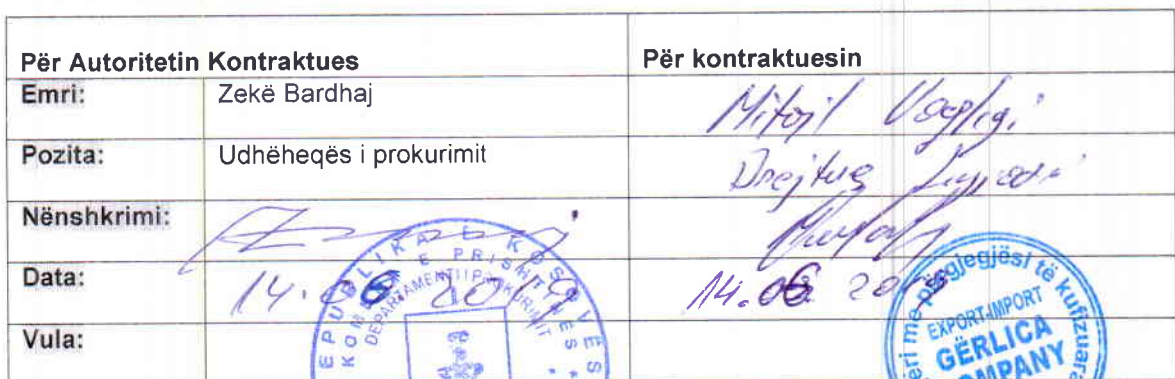 Për Autoritetin Kontraktues Për kontraktuesin
Emri: Zekë Bardhaj
Pozita: Udhëheqës i prokurimit
Nënshkrimi:
Data: 14.06.2019 14.06.2019
Vula:
REPUBLIKA E KOSOVËS
KOMUNA E PRISHTINËS
DEPARTAMENTI I PROKURIMIT
me përgjegjësi të kufizuara
EXPORT-IMPORT
GËRLICA
COMPANY